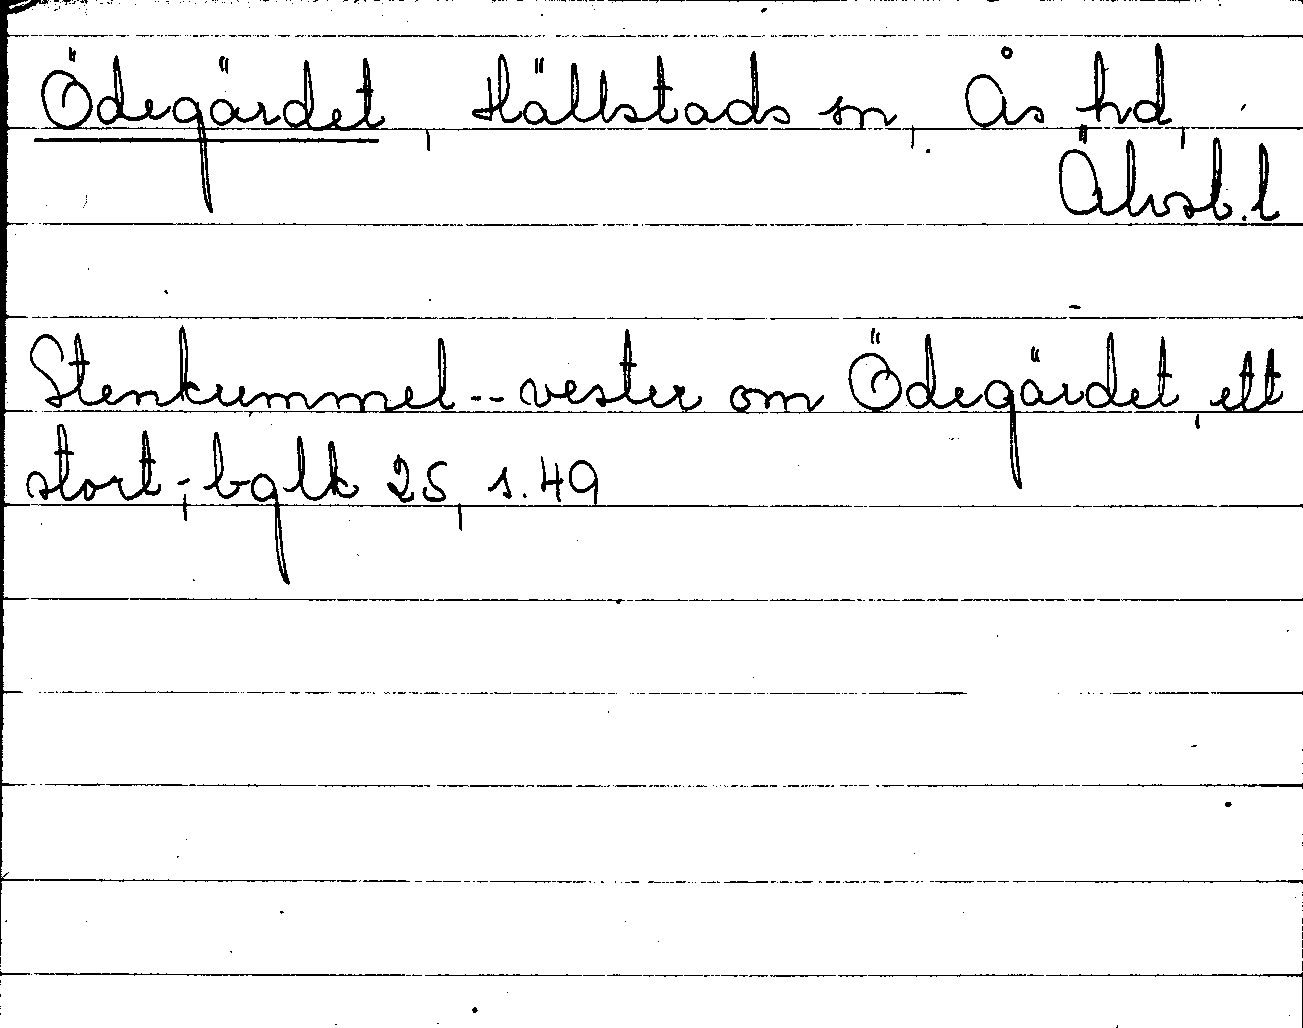 Ödegärdet, Hällstads sn, Ås hd,
Älvsb.l
Stenkummel -- vester om Ödegärdet, ett
stort; bglk 25, s. 49